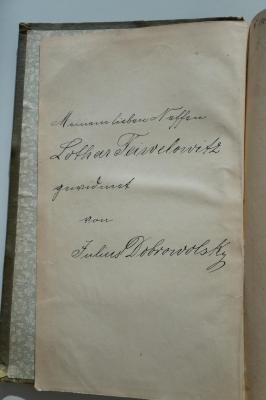 Meinem lieben Neffen
Lothar Faiwelowitz
gewidmet
von
Julius Dobrowolsky